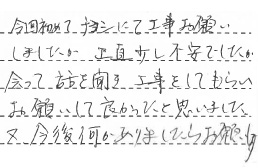 今回初めてチラシにて工事お願い
しましたが 正直少し不安でしたが
会って話を聞き 工事をしてもらい
お願いして良かったと思いました
又 今後何かありましたらお願い